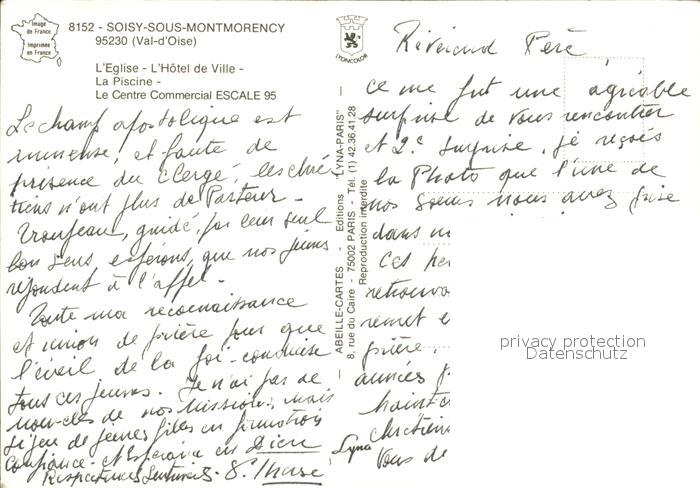 Image
de France
Imprimée
en France
8152 - SOISY-SOUS-MONTMORENCY
95230 (Val-d'Oise)
L'Eglise - L'Hôtel de Ville -
La Piscine -
Le Centre Commercial ESCALE 95
LYONCOLOR
ABEILLE-CARTES - Editions "LYNA-PARIS"
8, rue du Caire - 75002 PARIS - Tél. (1) 42.36.41.28
Reproduction interdite
Révérend Père
Ce me fut une agréable
surprise de vous rencontrer
et 2e surprise, je reçois
la Photo que l'une de
nos Soeurs nous avez prise
dans
Ces
retrouva
remet
prière.
années
Chrétien
Vous de
Le champ apostolique est
immense, et faute de
présence du Clergé, les chré
tiens n'ont plus de Pasteur -
Troupeau, guidé, par leur seul
bon sens espérons, que nos jeunes
répondent à l'appel -
Toute ma reconnaissance
et union de prière pour que
l'éveil de la foi conduise
tous ces jeunes. Je n'ai pas de
nouvelles de nos missions, mais
de jeunes filles en formation
Confiance - et Espérance en Dieu
Respectueux Sentiments - S.
Lyna
privacy protection
Datenschutz